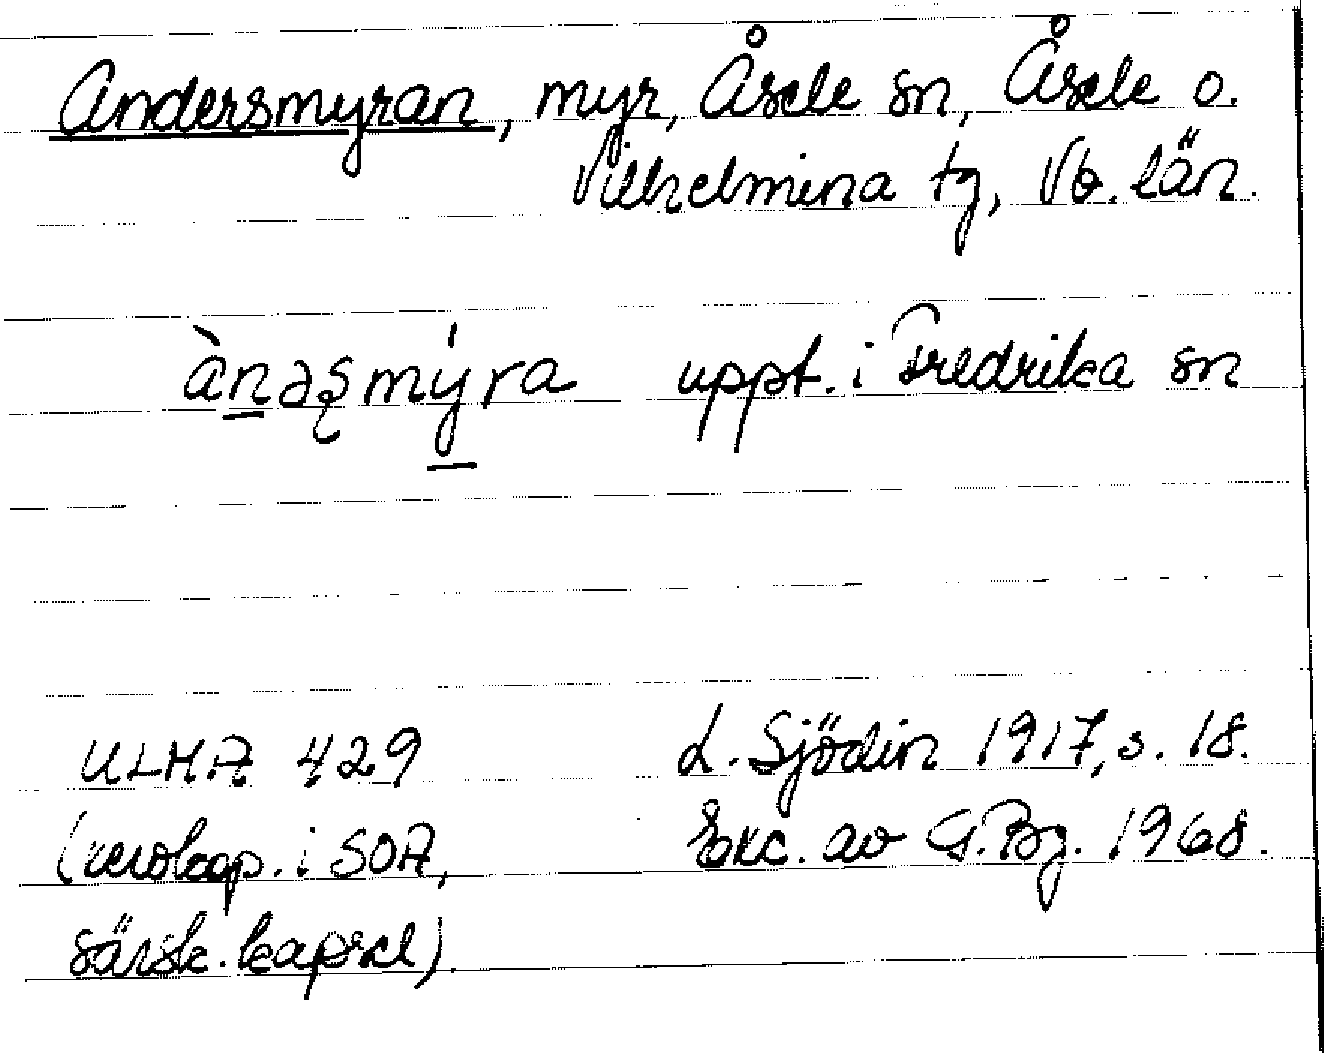 Andersmyran, myr, Åsele sn, Åsele o.
Vilhelmina tg, Vb. län.
ànəʂmýra uppt. i Fredrika sn
ULMA 429 L. Sjödin 1917, s. 18.
(xerokop. i SOA, Exc. av G. Bg. 1968.
särsk. kapsel).